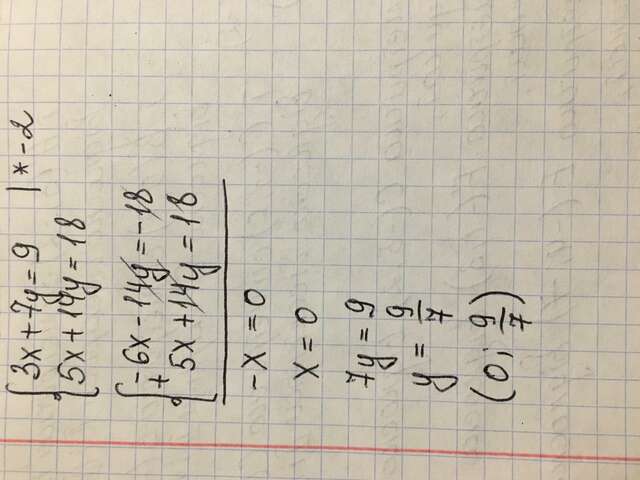 {3x+7y=9 | *-2
{5x+14y=18
{-6x-14y=-18
+
{5x+14y=18
-x=0
x=0
7y=9
y=9/7
(0; 9/7)